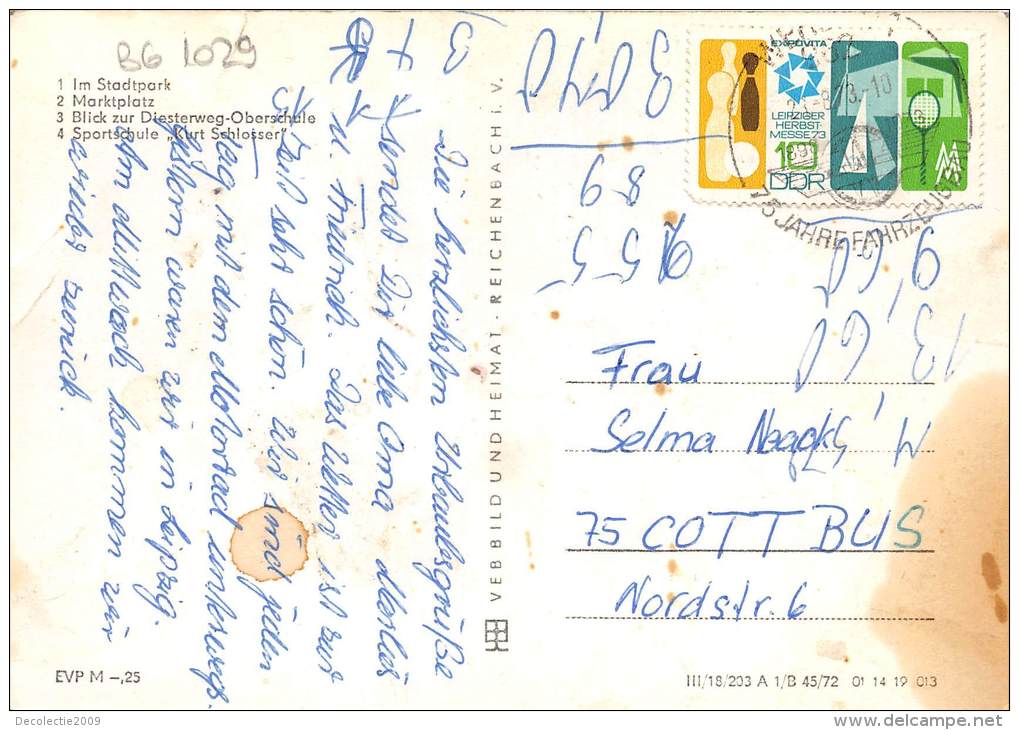 BG 1029
1 Im Stadtpark
2 Marktplatz
3 Blick zur Diesterweg-Oberschule
4 Sportschule „Kurt Schlosser"
Die herzlichsten Urlaubsgrüße
sendet Dir liebe Oma
u. Friedrich. Das Wetter ist zur
Zeit sehr schön. Wir sind jeden
Tag mit dem Motorrad unterwegs.
Gestern waren wir in Leipzig.
Am Mittwoch kommen wir
wieder zurück.
EVP M –,25
VEB BILD UND HEIMAT · REICHENBACH I. V.
EXPOVITA
LEIPZIGER
HERBST-
MESSE 73
10
DDR
MM
75 JAHRE FAHRZEUG
89
9,55
13,60
Frau
Selma
75 COTTBUS
Nordstr. 6
III/18/203 A 1/B 45/72 01 14 19 013
Decolectie2009
delcampe.net